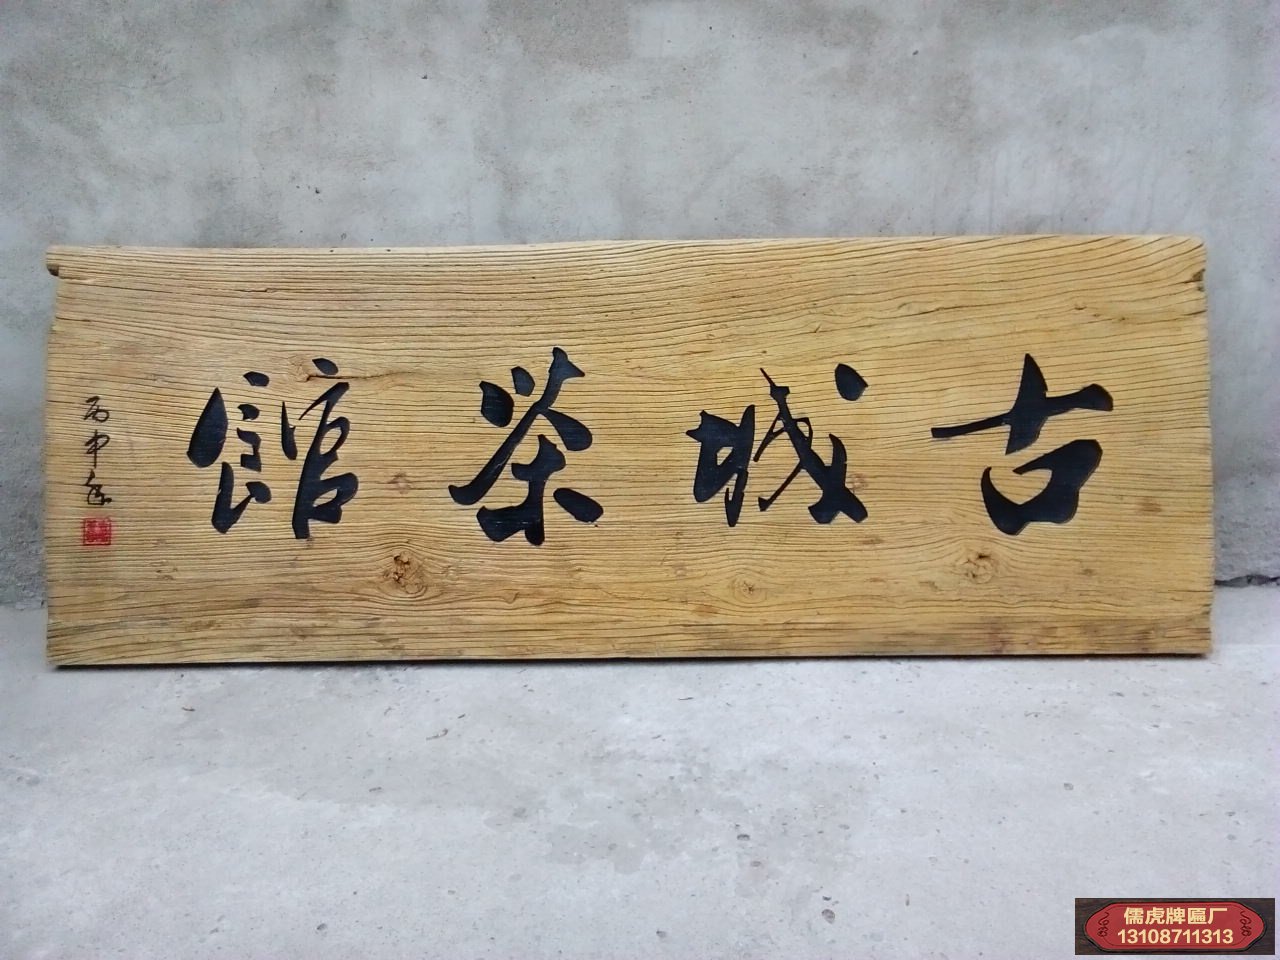 古城茶館
丙申年
儒虎牌匾厂
13108711313